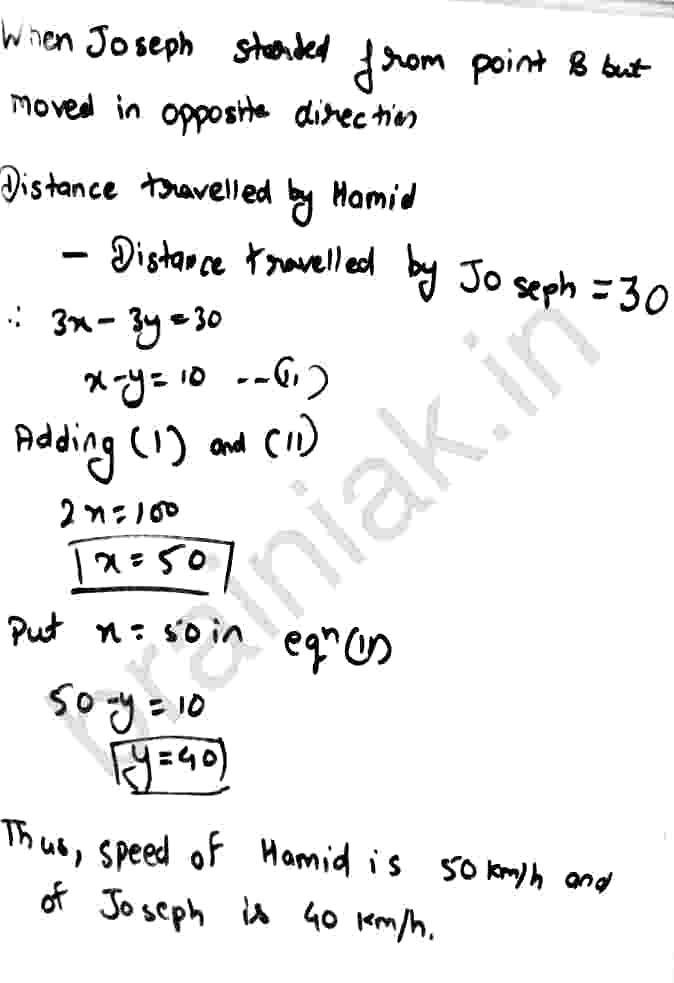 When Joseph started from point B but
moved in opposite direction
Distance travelled by Hamid
- Distance travelled by Joseph = 30
∴ 3x - 3y = 30
x - y = 10 --(ii)
Adding (I) and (II)
2x = 100
x = 50
Put x = 50 in eqⁿ (ii)
50 - y = 10
y = 40
Thus, speed of Hamid is 50 km/h and
of Joseph is 40 km/h.
brainiak.in